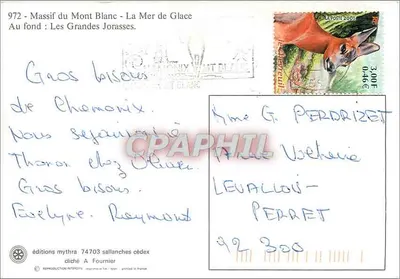 972 - Massif du Mont Blanc - La Mer de Glace
Au fond : Les Grandes Jorasses.
Gros bisous
de Chamonix.
Nous
chez Olivier.
Gros bisous.
Evelyne. Raymond
LA POSTE 2001
RF
3,00F
0,46€
MONT BLANC
CPAPHIL.COM
Mme G. PERDRIZET
LEVALLOIS-
PERRET
92 300
éditions mythra 74703 sallanches cédex
cliché A Fournier